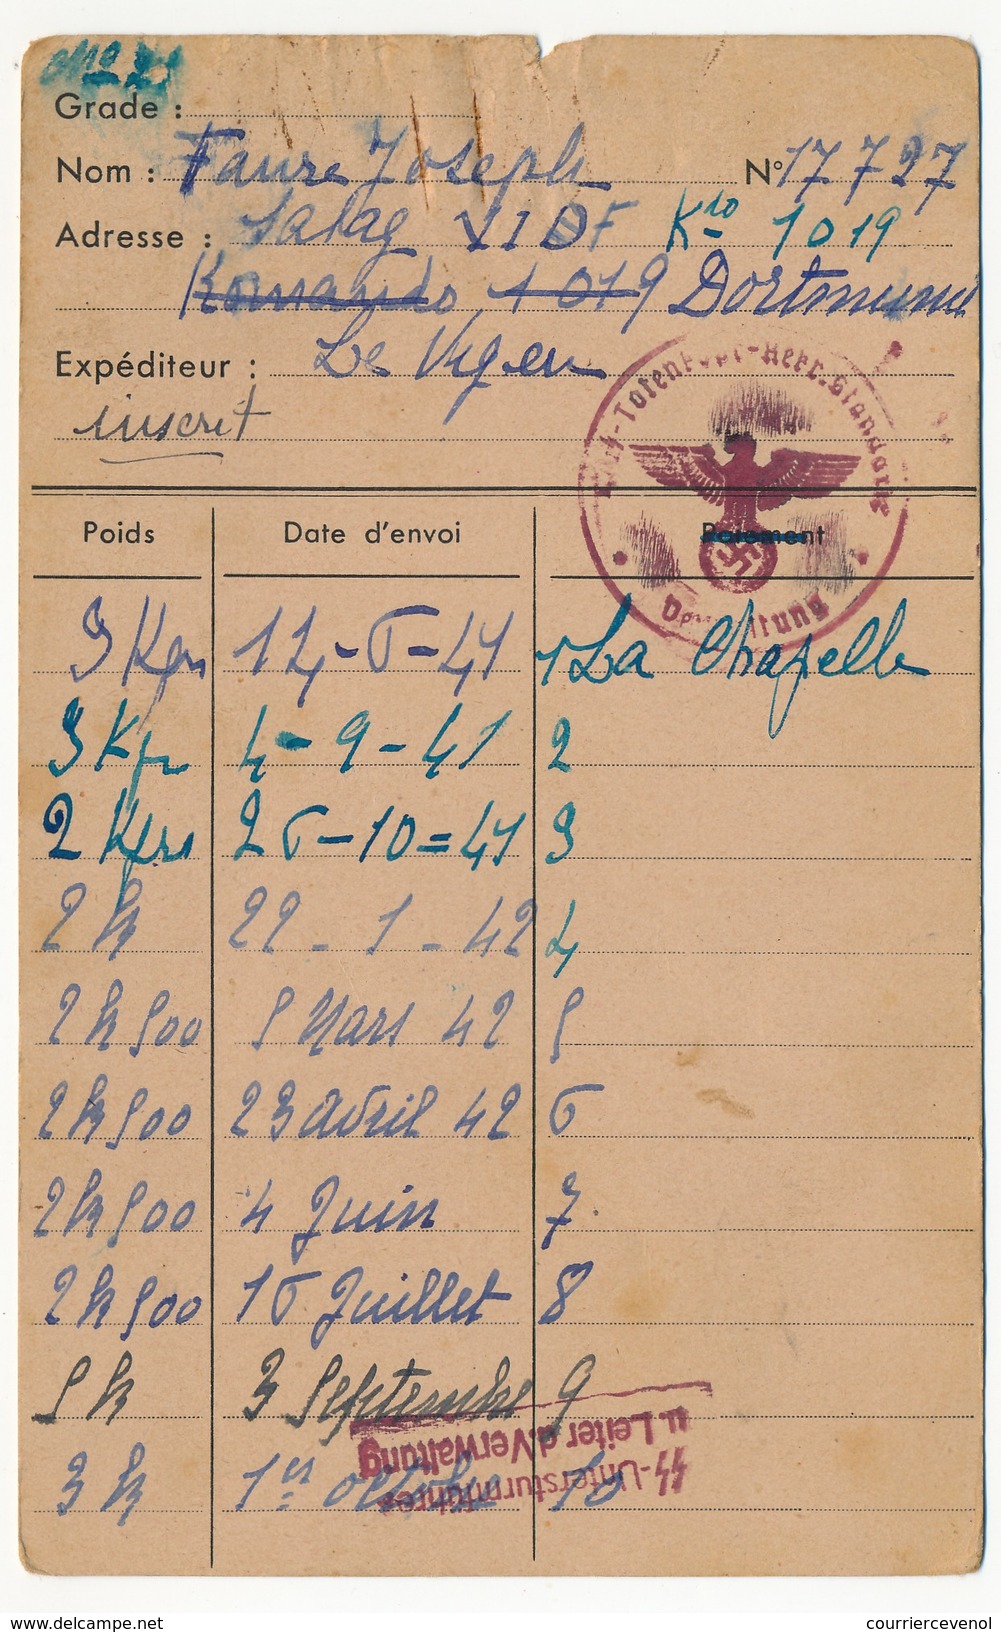 Grade :
Nom : Faure Joseph N° 17 727
Adresse : Stalag VI D F Kdo 1019
Kommando 1019 Dortmund
Expéditeur : Le Vigen
inscrit
Poids Date d'envoi Paiement
Verwaltung
3 Kgs 14-6-41 1 La Chapelle
3 Kgs 4-9-41 2
2 Kgrs 26-10=41 3
2 k 22-1-42 4
2 k 500 5 Mars 42 5
2 k 500 23 avril 42 6
2 k 500 4 Juin 7
2 k 500 16 Juillet 8
5 k 3 Septembre 9
3 k 1er octobre 10
SS-Untersturmführer
u. Leiter d. Verwaltung
delcampe.net
courriercevenol